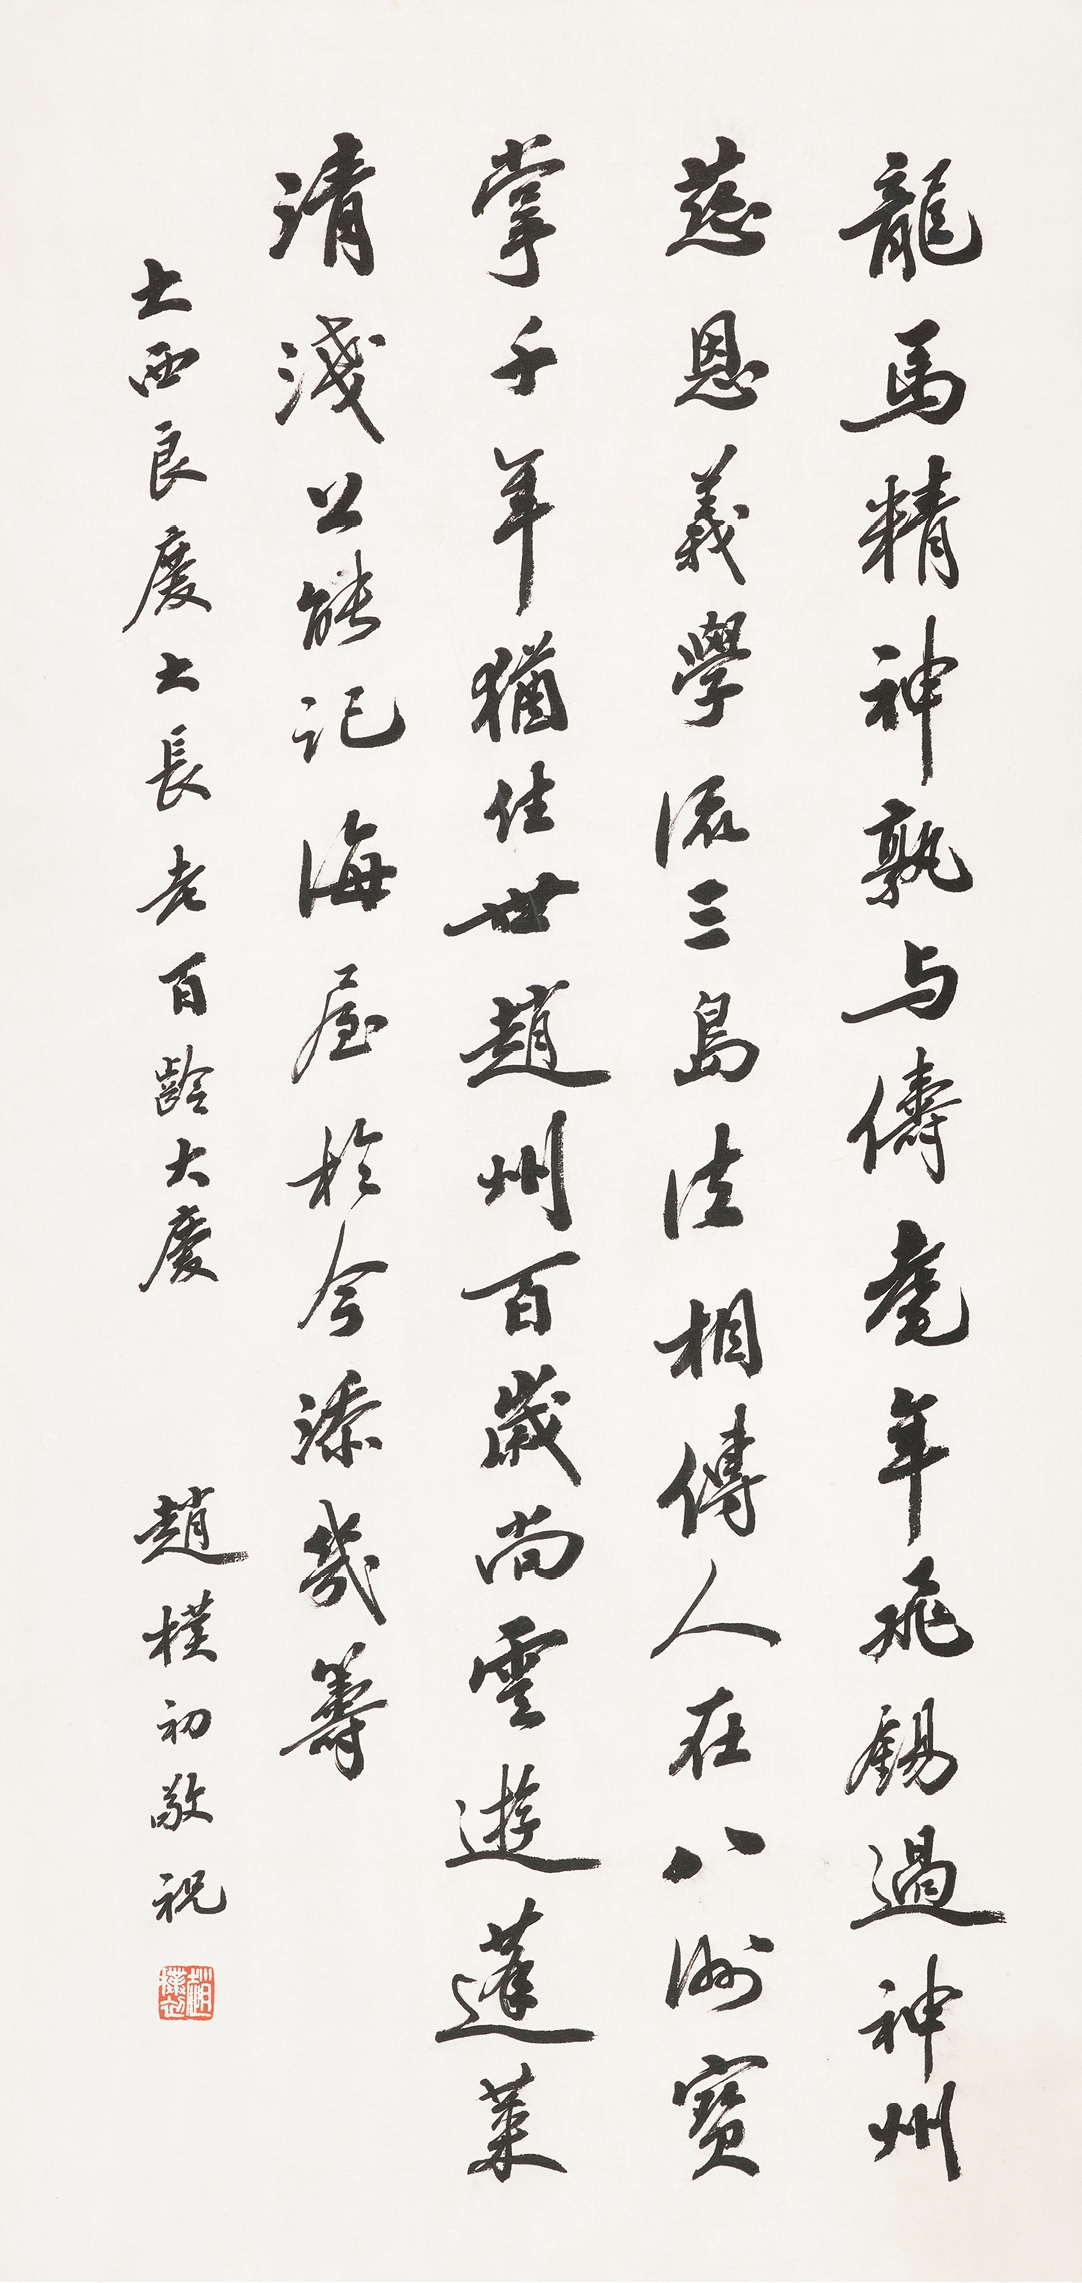 龍馬精神孰与儔耄年飛錫過神州
慈恩義學流三島法相傳人在八洲寶
掌千年猶住世趙州百歲尚雲遊蓬萊
清淺公能記海屋於今添幾籌
大西良慶大長老百齡大慶
趙樸初敬祝
趙樸初